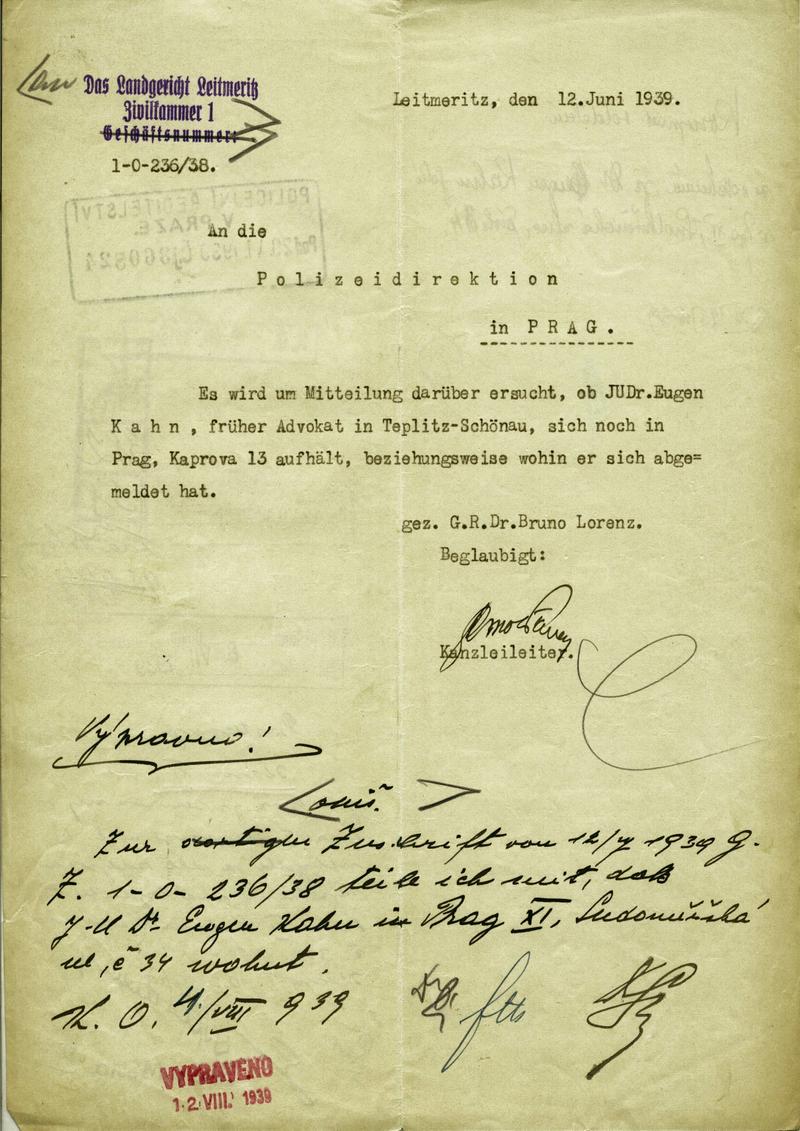 Das Landgericht Leitmeritz
Zivilkammer 1
Geschäftsnummer:
1-0-236/38.
Leitmeritz, den 12.Juni 1939.
POLICEJNÍ ŘEDITELSTVÍ
V PRAZE.
An die
Polizeidirektion
in PRAG.
Es wird um Mitteilung darüber ersucht, ob JUDr.Eugen
Kahn, früher Advokat in Teplitz-Schönau, sich noch in
Prag, Kaprova 13 aufhält, beziehungsweise wohin er sich abge=
meldet hat.
gez. G.R.Dr.Bruno Lorenz.
Beglaubigt:
Kanzleileiter.
Vypraveno!
Zur dortigen Zuschrift von 12/7 1939 G.
Z. 1-0-236/38 teile ich mit, daß
J-U Dr Eugen Kahn in Prag XI, Sudoměřská
ul, č 34 wohnt.
K. O. 4/VIII 939
VYPRAVENO
12.VIII. 1939